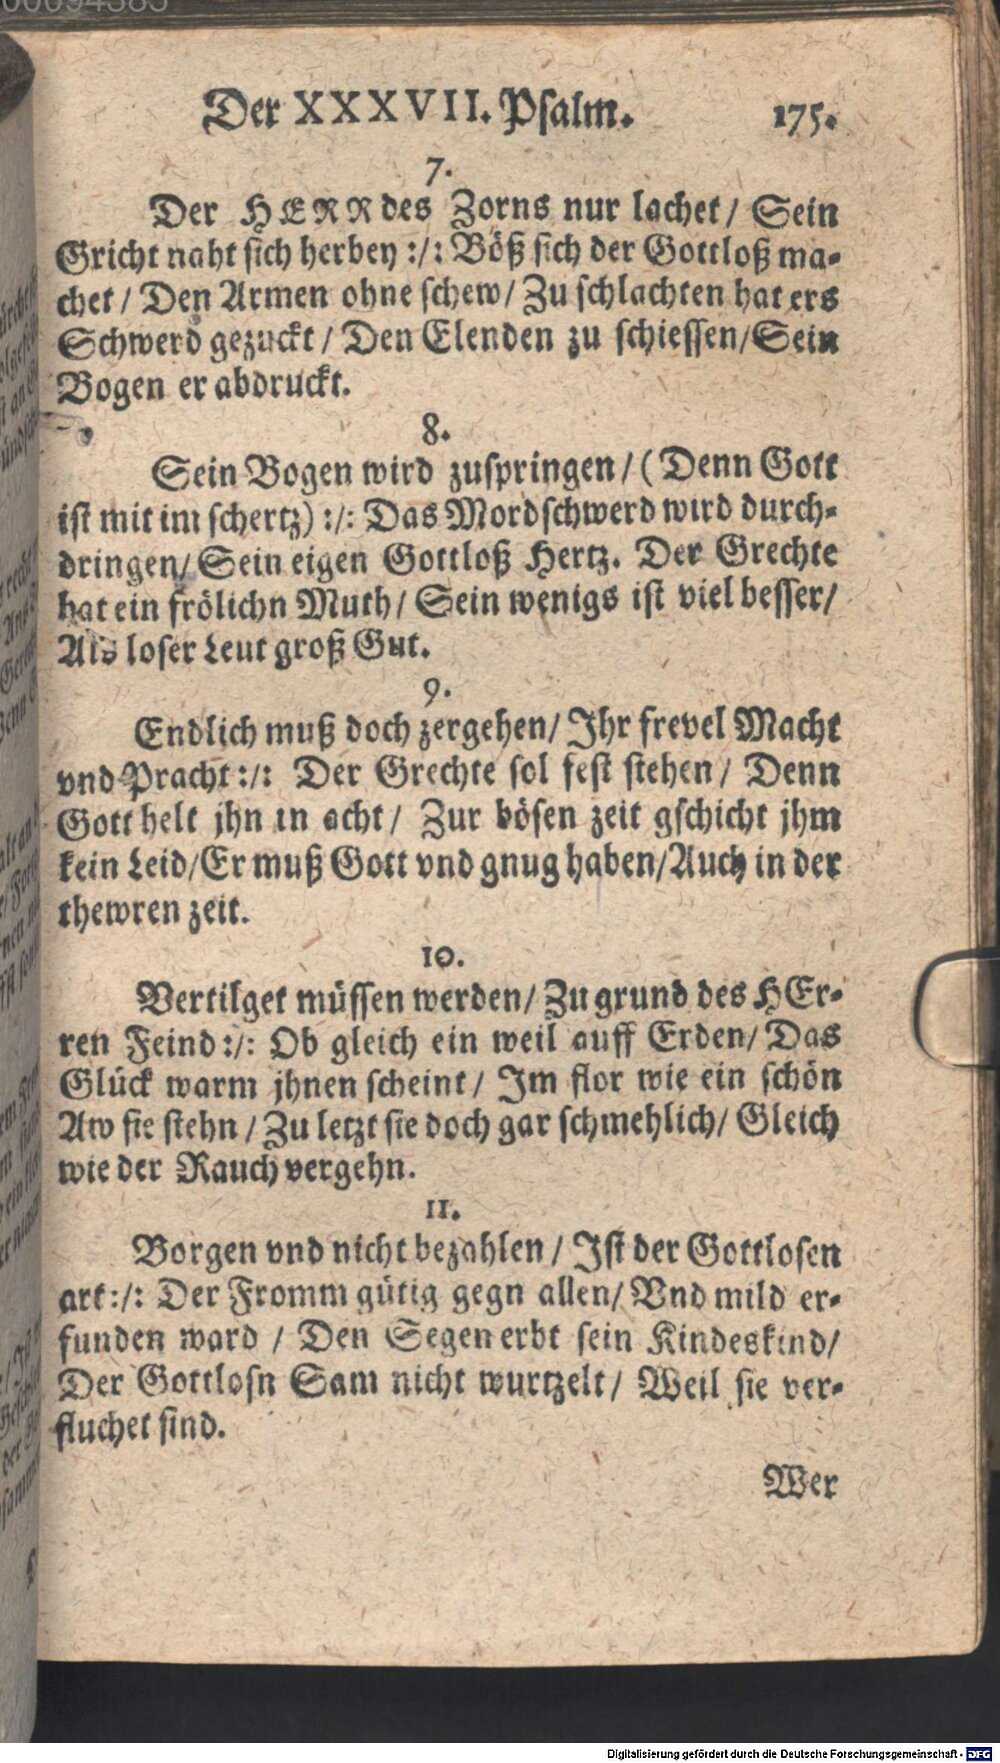 Der XXXVII. Psalm. 175.
7.
Der HERR des Zorns nur lachet / Sein
Gricht naht sich herbey :/: Böß sich der Gottloß ma-
chet / Den Armen ohne schew / Zu schlachten hat ers
Schwerd gezuckt / Den Elenden zu schiessen / Sein
Bogen er abdruckt.
8.
Sein Bogen wird zuspringen / ( Denn Gott
ist mit im schertz) :/: Das Mordschwerd wird durch-
dringen / Sein eigen Gottloß Hertz. Der Grechte
hat ein frölichn Muth / Sein wenigs ist viel besser /
Als loser Leut groß Gut.
9.
Endlich muß doch zergehen / Ihr frevel Macht
vnd Pracht :/: Der Grechte sol fest stehen / Denn
Gott helt jhn in acht / Zur bösen zeit gschicht jhm
kein Leid / Er muß Gott vnd gnug haben / Auch in der
thewren zeit.
10.
Vertilget müssen werden / Zu grund des HEr-
ren Feind :/: Ob gleich ein weil auff Erden / Das
Glück warm jhnen scheint / Im flor wie ein schön
Aw sie stehn / Zu letzt sie doch gar schmehlich / Gleich
wie der Rauch vergehn.
11.
Borgen vnd nicht bezahlen / Ist der Gottlosen
art :/: Der Fromm gütig gegn allen / Vnd mild er-
funden ward / Den Segen erbt sein Kindeskind /
Der Gottlosn Sam nicht wurtzelt / Weil sie ver-
fluchet sind.
Wer
Digitalisierung gefördert durch die Deutsche Forschungsgemeinschaft - DFG